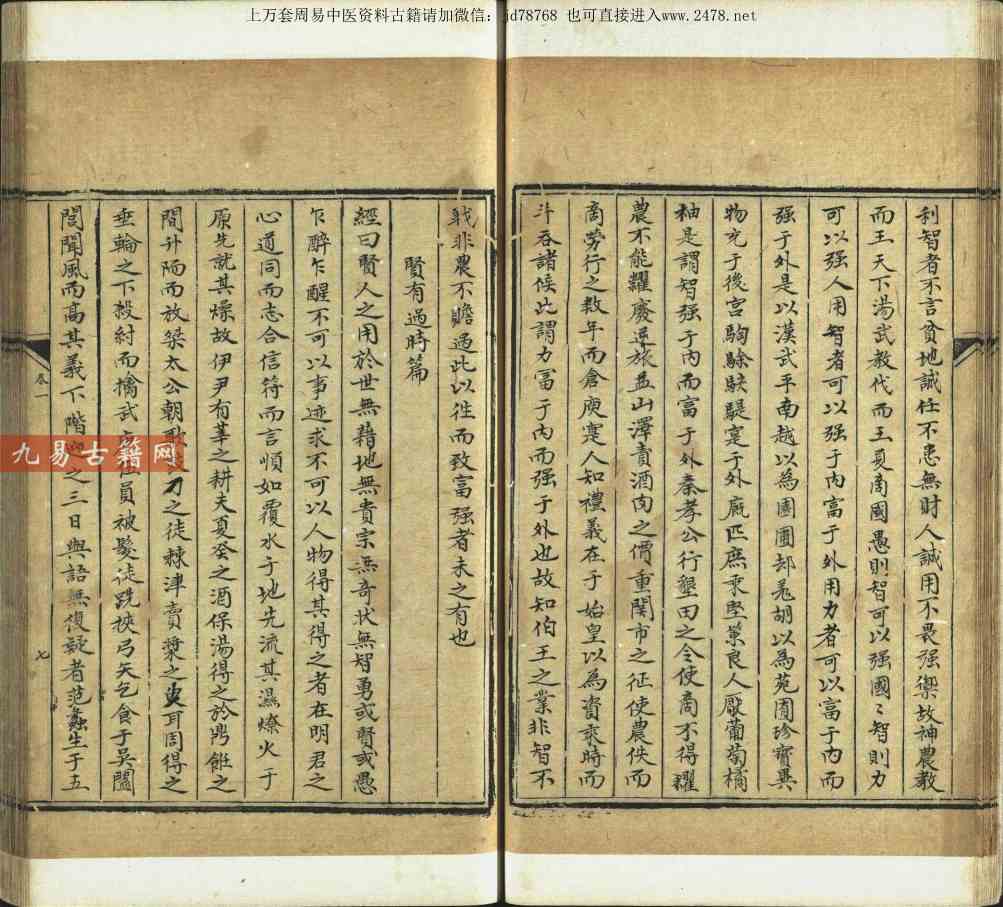 上万套周易中医资料古籍请加微信：jd78768 也可直接进入www.2478.net
利智者不言貧地誠任不患無財人誠用不畏强禦故神農教
而王天下湯武教代而王夏商國愚則智可以强國〻智則力
可以强人用智者可以强于內富于外用力者可以富于內而
强于外是以漢武平南越以為園圃却羗胡以為苑囿珍寶異
物充于後宮駒駼駃騠寔于外廐匹庶乘堅策良人厭葡萄橘
柚是謂智强于內而富于外秦孝公行墾田之令使商不得糴
農不能糶廢逆旅盖山澤賣酒肉之價重関市之征使農佚而
商勞行之数年而倉庾寔人知禮義在于始皇以為資乘時而
斗吞諸候此謂力富于內而强于外也故知伯王之業非智不
戦非農不贍過此以徃而致富强者未之有也
賢有遇時篇
經曰賢人之用於世無藉地無貴宗無奇状無智勇或賢或愚
乍醉乍醒不可以事迹求不可以人物得其得之者在明君之
心道同而志合信符而言順如覆水于地先流其濕燎火于
原先就其燥故伊尹有莘之耕夫夏癸之酒保湯得之於鼎飪之
間升陑而放桀太公朝歌刀之徒棘津賣漿之叟耳周得之
垂輪之下殺紂而擒武員被髮徒跣挾弓矢乞食于吳闔
閭聞風而高其義下階之三日與語無復疑者范蠡生于五
卷一
七
九易古籍网